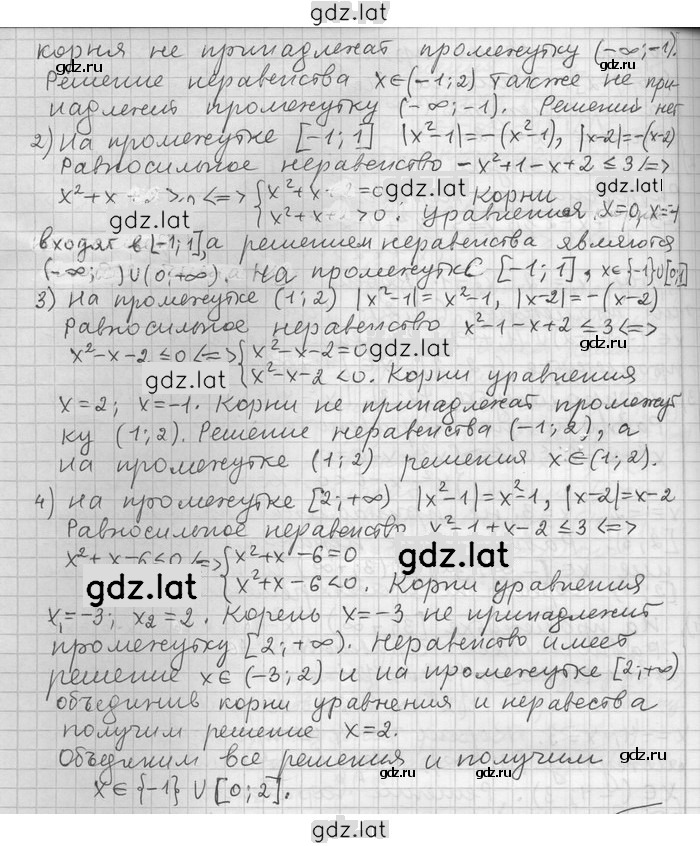 gdz.lat
корня не принадлежат промежутку (-∞;-1).
Решение неравенства x∈(-1;2) также не при-
надлежит промежутку (-∞;-1). Решений нет
2) На промежутке [-1;1] |x²-1|=-(x²-1), |x-2|=-(x-2)
Равносильное неравенство -x²+1-x+2≤3<=>
gdz.lat gdz.lat
x²+x <=> {x²+x =0 Корни
gdz.lat
x²+x >0. уравнения x=0, x=-1
входят в [-1;1], а решением неравенства являются
(-∞; )∪(0;+∞). На промежутке [-1;1], x∈{-1}∪[0;1]
gdz.lat
3) На промежутке (1;2) |x²-1|=x²-1, |x-2|=-(x-2)
Равносильное неравенство x²-1-x+2≤3<=>
gdz.lat gdz.lat
x²-x-2≤0<=>{x²-x-2=0
gdz.lat
x²-x-2<0. Корни уравнения
x=2; x=-1. Корни не принадлежат промежут
ку (1;2). Решение неравенства (-1;2), а
на промежутке (1;2) решения x∈(1;2).
4) На промежутке [2;+∞) |x²-1|=x²-1, |x-2|=x-2
gdz.lat
Равносильное неравенство x²-1+x-2≤3<=>
x²+x-6≤0<=>{x²+x-6=0
gdz.lat
gdz.lat
x²+x-6<0. Корни уравнения
x₁=-3; x₂=2. Корень x=-3 не принадлежит
gdz.lat
промежутку [2;+∞). Неравенство имеет
решение x∈(-3;2) и на промежутке [2;+∞)
объединив корни уравнения и неравества
получим решение x=2.
Объединим все решения и получим
gdz.lat gdz.lat
x∈{-1}∪[0;2].
gdz.lat